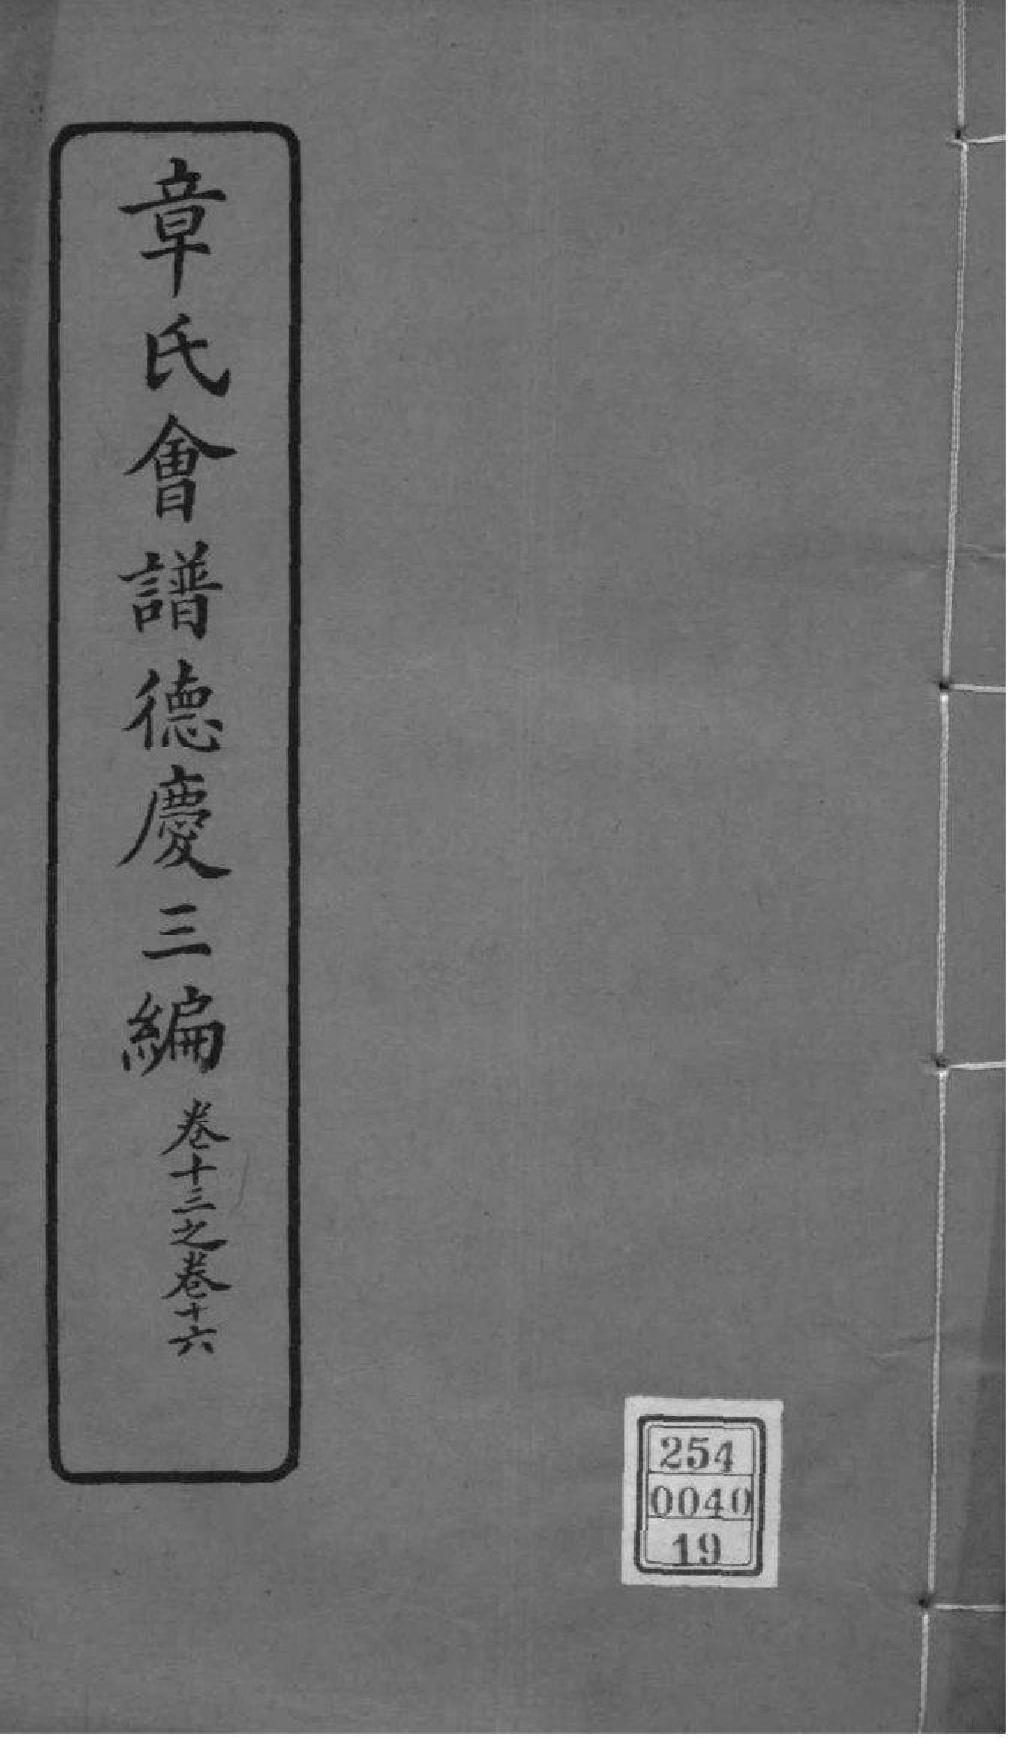 章氏會譜德慶三編
卷十三之卷十六
254
0040
19